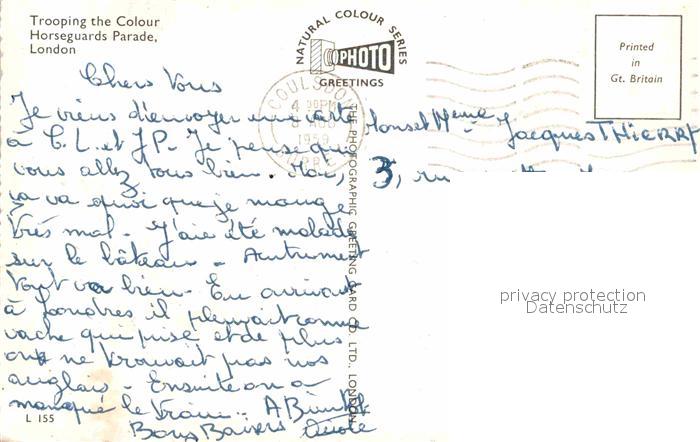 Trooping the Colour
Horseguards Parade,
London
NATURAL COLOUR SERIES
PHOTO
GREETINGS
Printed
in
Gt. Britain
COULSDON
SURREY
THE PHOTOGRAPHIC GREETING CARD CO. LTD., LONDON
Chers Vous
Je viens d'envoyer une carte
à C.L. et J.P. Je pense que
vous allez tous bien. Moi,
ça va quoi que je mange
très mal. J'aie été malade
sur le bâteau. Autrement
tout va bien. En arrivant
à Londres il pleuvait comme
vache qui pisse et de plus
on ne trouvait pas nos
anglais. Ensuite on a
manqué le train. A Bientôt
Bons Baisers
Jacques THIERRY
3, ru
L 155
privacy protection
Datenschutz